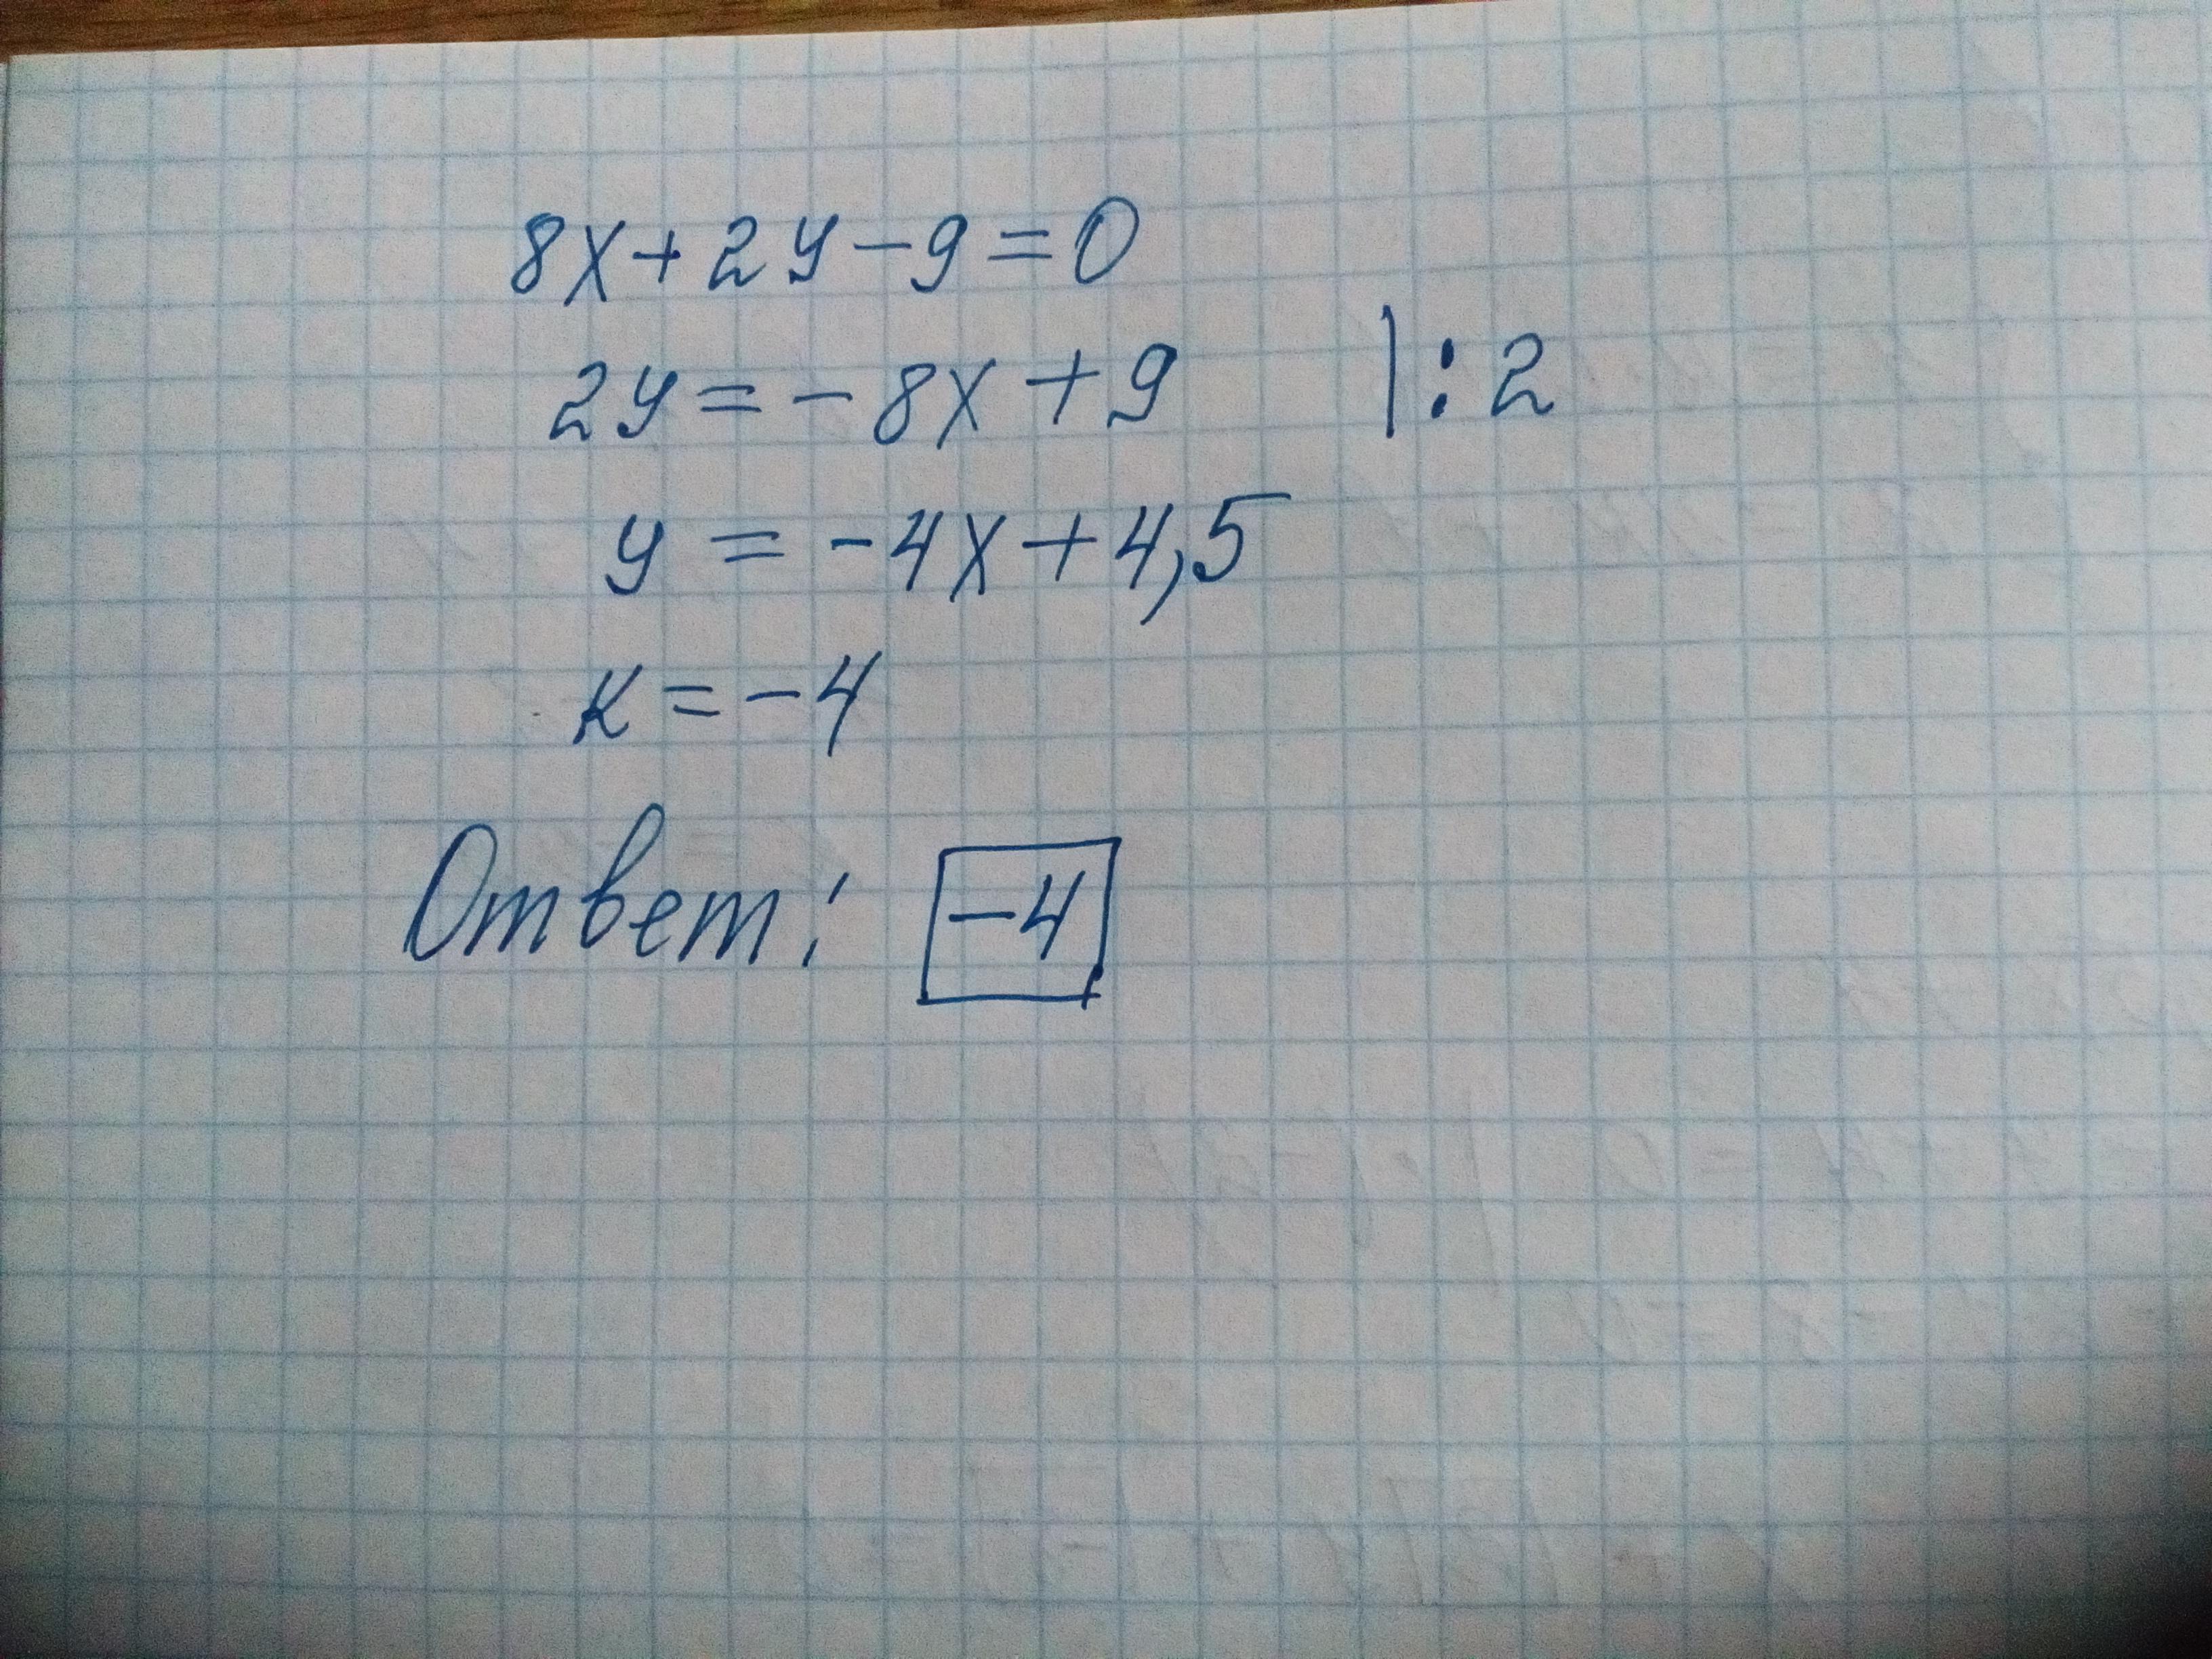 8x+2y-9=0
2y=-8x+9 |:2
y=-4x+4,5
к=-4
Ответ: -4